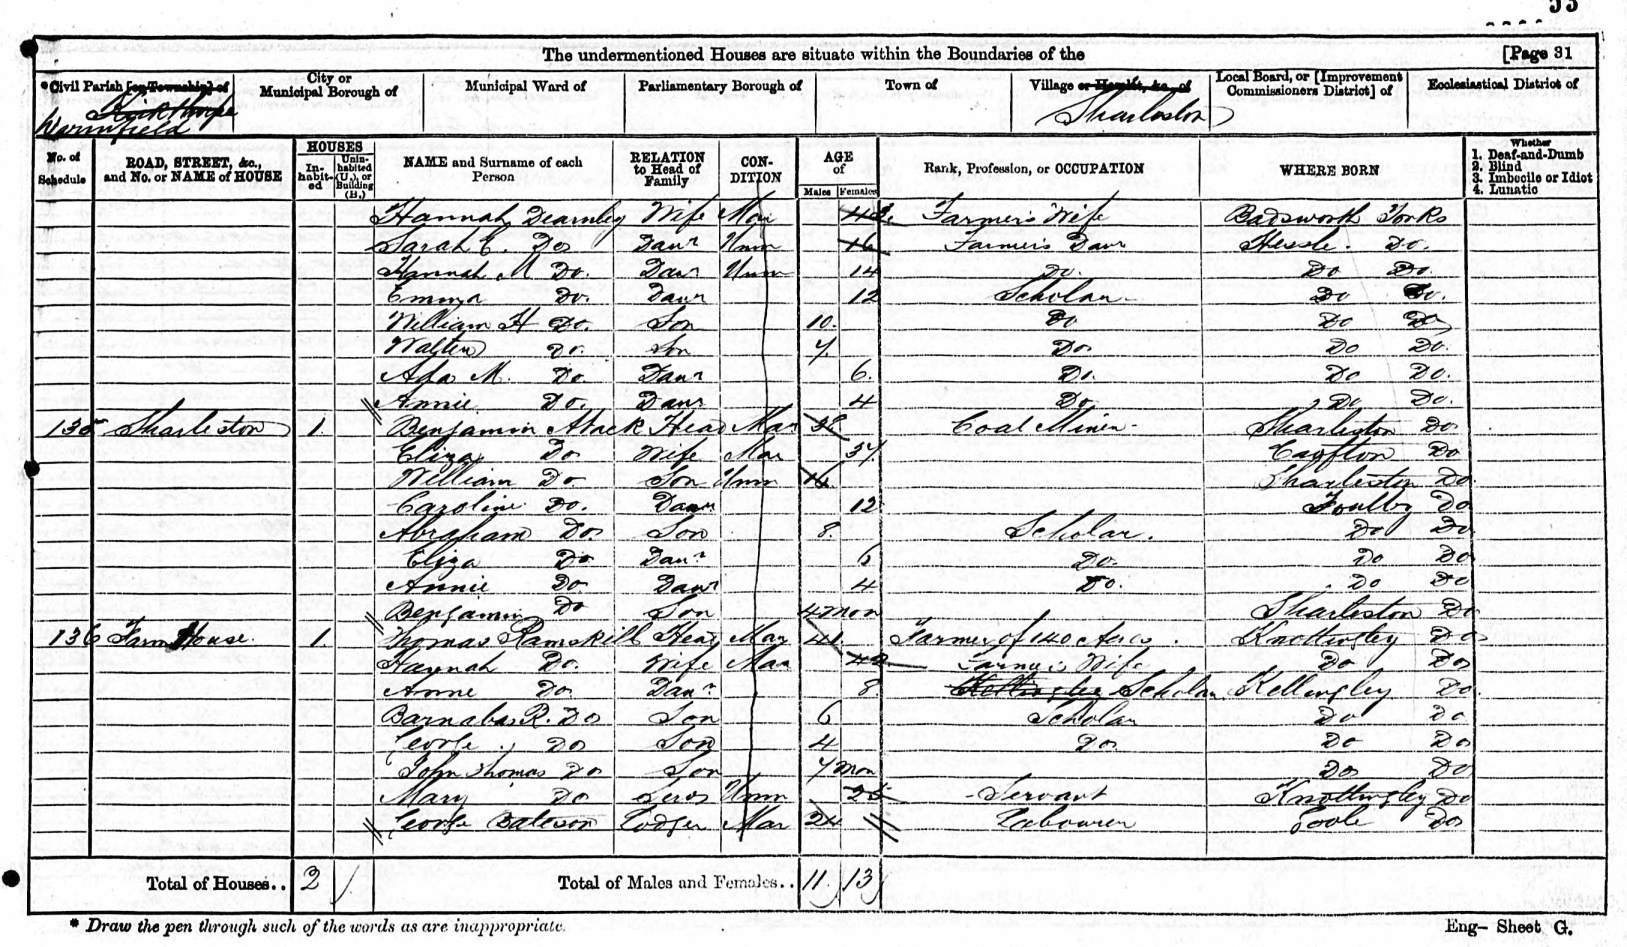 53
The undermentioned Houses are situate within the Boundaries of the [Page 31
*Civil Parish [or Township] of City or Municipal Borough of Municipal Ward of Parliamentary Borough of Town of Village or Hamlet, &c., of Local Board, or [Improvement Commissioners District] of Ecclesiastical District of
Kirkthorpe
Warmfield Sharleston
No. of Schedule ROAD, STREET, &c., and No. or NAME of HOUSE HOUSES In-habit-ed Unin-habited (U.), or Building (B.) NAME and Surname of each Person RELATION to Head of Family CON-DITION AGE of Males Females Rank, Profession, or OCCUPATION WHERE BORN Whether 1. Deaf-and-Dumb 2. Blind 3. Imbecile or Idiot 4. Lunatic
Hannah Dearnley Wife Mar Farmer's Wife Badsworth Yorks
Sarah E. Do Daur Unm 16 Farmer's Daur Hessle. Do.
Hannah M Do. Daur Unm 14 Do. Do Do.
Emma Do. Daur 12 Scholar Do Do.
William H Do. Son 10. Do Do Do
Walter Do. Son 7. Do Do Do.
Ada M. Do. Daur 6. Do. Do Do.
Annie Do. Daur 4 Do Do Do.
135 Sharleston 1. Benjamin Atack Head Mar 38 Coal Miner Sharleston Do
Eliza Do Wife Mar 37 Crofton Do
William Do Son Unm 14 Sharleston Do.
Caroline Do. Daur 12 Foulby Do
Abraham Do Son 8. Scholar. Do Do
Eliza Do Daur 6 Do. Do Do
Annie Do Daur 4 Do. Do Do
Benjamin Do Son 4 Mon Sharleston Do
136 Farm House. 1. Thomas Ramskill Head Mar 41 Farmer of 140 Acres. Knottingley Do
Hannah Do. Wife Mar 42 Farmer's Wife Do Do
Annie Do Daur 8 Scholar Kellingley Do.
Barnabas R. Do Son 6 Scholar Do Do
George Do Son 4 Do Do Do
John Thomas Do Son 7 Mon Do Do
Mary Do Serv Unm 25 Servant Knottingley Do
George Bateson Lodger Mar 24 Labourer Goole Do
Total of Houses.. 2 Total of Males and Females.. 11 13
* Draw the pen through such of the words as are inappropriate. Eng- Sheet G.